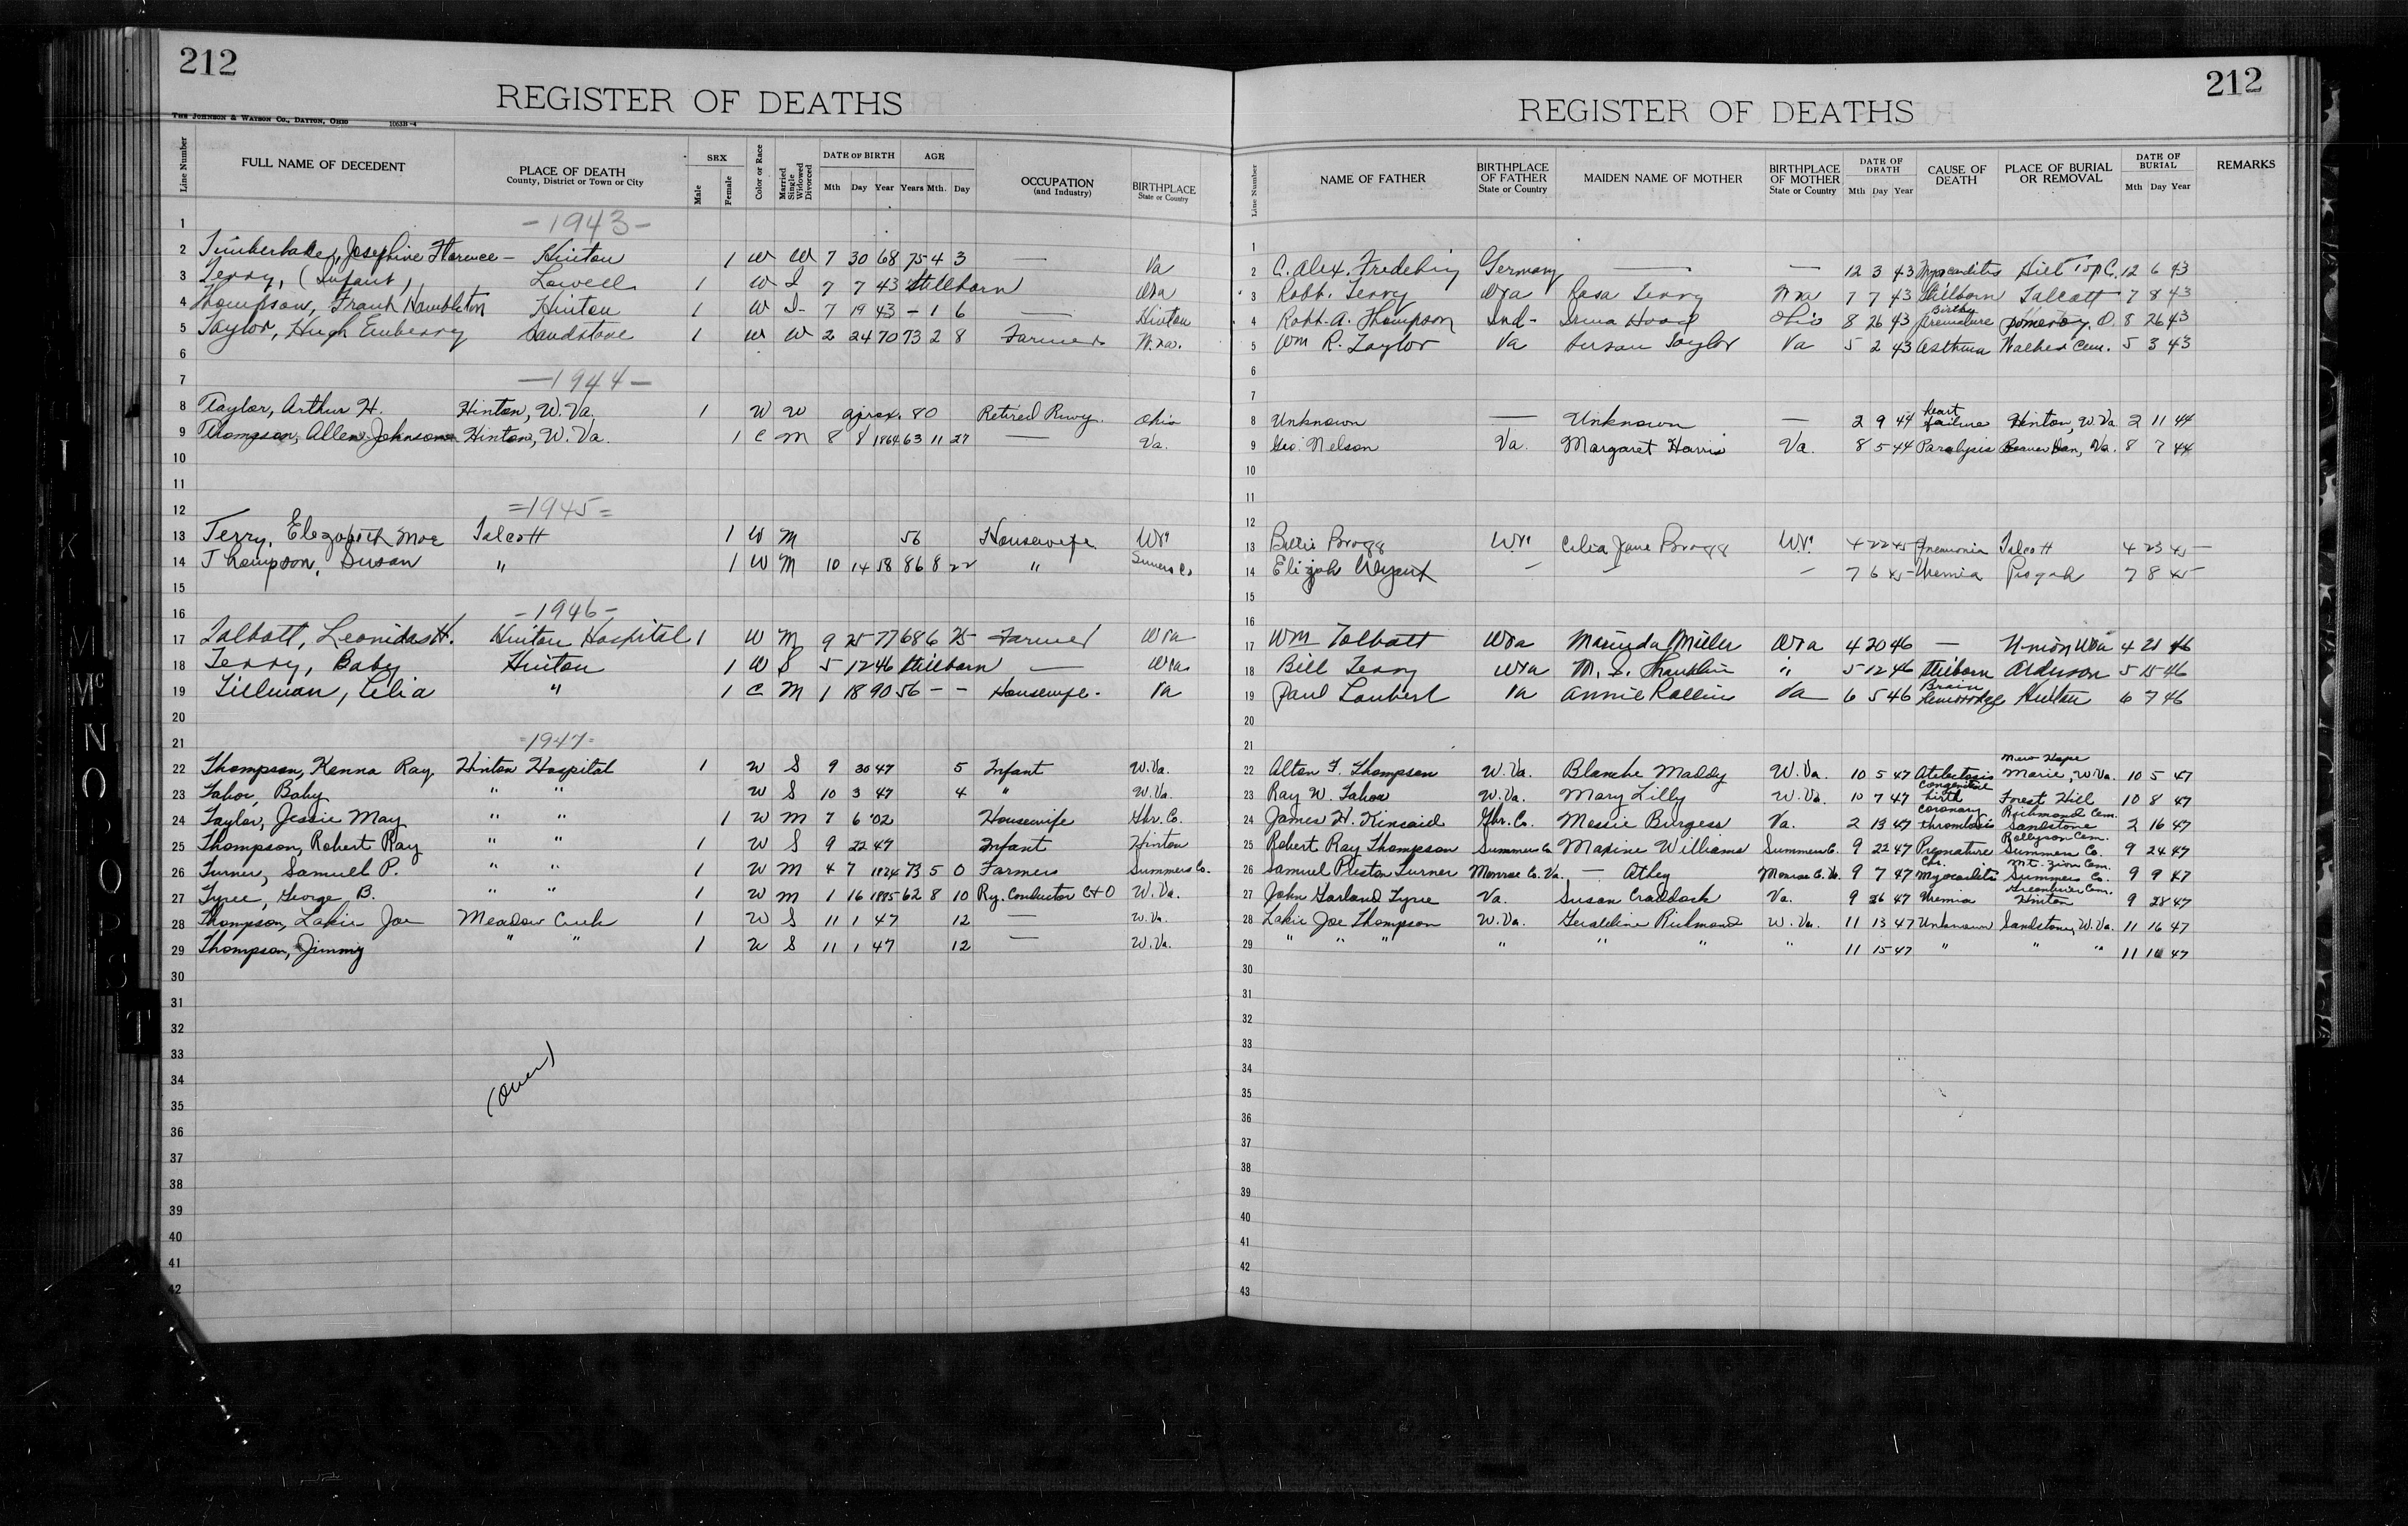 212
REGISTER OF DEATHS
THE JOHNSON & WATSON CO., DAYTON, OHIO 1063H-4
Line Number FULL NAME OF DECEDENT PLACE OF DEATH County, District or Town or City SEX Male Female Color or Race Married Single Widowed Divorced DATE OF BIRTH Mth Day Year AGE Years Mth. Day OCCUPATION (and Industry) BIRTHPLACE State or Country
1 -1943-
2 Timberlake, Josephine Florence - Hinton 1 W W 7 30 68 75 4 3 — Va
3 Terry, (Infant) Lowell 1 W S 7 7 43 Stillborn Wva
4 Thompson, Frank Hambleton Hinton 1 W S- 7 19 43 - 1 6 — Hinton
5 Taylor, Hugh Emberry Sandstone 1 W W 2 24 70 73 2 8 Farmer W.va.
6
7 -1944-
8 Taylor, Arthur H. Hinton, W.Va. 1 W W aprox. 80 Retired Rwy. Ohio
9 Thompson, Allen Johnson Hinton, W.Va. 1 C M 8 8 1864 63 11 27 — Va.
10
11
12 =1945=
13 Terry, Elezabeth Mae Talcott 1 W M 56 Housewife Wva
14 Thompson, Susan " 1 W M 10 14 58 86 8 22 " Summers Co
15
16 -1946-
17 Talbott, Leonidas H. Hinton Hospital 1 W M 9 25 77 68 6 25 Farmer Wva
18 Terry, Baby Hinton 1 W S 5 12 46 Stillborn — Wva
19 Tillman, Celia " 1 C M 1 18 90 56 - - Housewife - Va
20
21 =1947=
22 Thompson, Kenna Ray Hinton Hospital 1 W S 9 30 47 5 Infant W.Va.
23 Tabor, Baby " " W S 10 3 47 4 " W.Va.
24 Taylor, Jessie May " " 1 W M 7 6 '02 Housewife Gbr. Co.
25 Thompson, Robert Ray " " 1 W S 9 22 47 Infant Hinton
26 Turner, Samuel P. " " 1 W M 4 7 1874 73 5 0 Farmer Summers Co.
27 Tyree, George B. " " 1 W M 1 16 1885 62 8 10 Ry. Conductor C+O W.Va.
28 Thompson, Lakie Joe Meadow Creek 1 W S 11 1 47 12 — W.Va.
29 Thompson, Jimmy " " 1 W S 11 1 47 12 — W.Va.
30
31
32
33
34 (over)
35
36
37
38
39
40
41
42
212
REGISTER OF DEATHS
Line Number NAME OF FATHER BIRTHPLACE OF FATHER State or Country MAIDEN NAME OF MOTHER BIRTHPLACE OF MOTHER State or Country DATE OF DEATH Mth Day Year CAUSE OF DEATH PLACE OF BURIAL OR REMOVAL DATE OF BURIAL Mth Day Year REMARKS
1
2 C. Alex. Fredeking Germany — — 12 3 43 Myocarditis Hill Top C. 12 6 43
3 Robt. Terry Wva Rosa Terry Wva 7 7 43 Stillborn Talcott 7 8 43
4 Robt. A. Thompson Ind- Irma Hood Ohio 8 26 43 premature Birth pomeroy, O. 8 26 43
5 Wm R. Taylor Va Susan Taylor Va 5 2 43 Asthma Walker Cem. 5 3 43
6
7
8 Unknown — Unknown — 2 9 44 heart failure Hinton, W.Va 2 11 44
9 Geo. Nelson Va. Margaret Harris Va. 8 5 44 Paralysis Beaver Dan, Va. 8 7 44
10
11
12
13 Billie Bragg Wva Celia Jane Bragg Wva 4 22 45 Pneumonia Talcott 4 23 45
14 Elijah - - - 7 6 45 Uremia Pisgah 7 8 45
15
16
17 Wm Talbott Wva Marinda Miller Wva 4 20 46 — Union Wva 4 21 46
18 Bill Terry Wva M. L. Franklin " 5 12 46 Stillborn Alderson 5 15 46
19 Paul Lambert Va Annie Rollins Va 6 5 46 Brain hemorrhage Hinton 6 7 46
20
21
22 Alton F. Thompson W.Va. Blanche Maddy W.Va. 10 5 47 Atelectasis New Hope Marie, W.Va. 10 5 47
23 Ray W. Tabor W.Va. Mary Lilly W.Va. 10 7 47 Congenital birth Forest Hill 10 8 47
24 James H. Kincaid Gbr. Co. Messie Burgess Va. 2 13 47 Coronary thrombosis Richmond Cem. Sandstone 2 16 47
25 Robert Ray Thompson Summers Co Maxine Williams Summers Co. 9 22 47 Premature Rollyson Cem. Summers Co. 9 24 47
26 Samuel Preston Turner Monroe Co. Va. — Atley Monroe Co. Va. 9 7 47 Chr. Myocarditis Mt. Zion Cem. Summers Co. 9 9 47
27 John Garland Tyree Va. Susan Craddock Va. 9 26 47 Uremia Greenbrier Cem. Hinton 9 28 47
28 Lakie Joe Thompson W.Va. Geraldine Richmond W.Va. 11 13 47 Unknown Sandstone, W.Va. 11 16 47
29 " " " " " " " 11 15 47 " " " 11 16 47
30
31
32
33
34
35
36
37
38
39
40
41
42
43